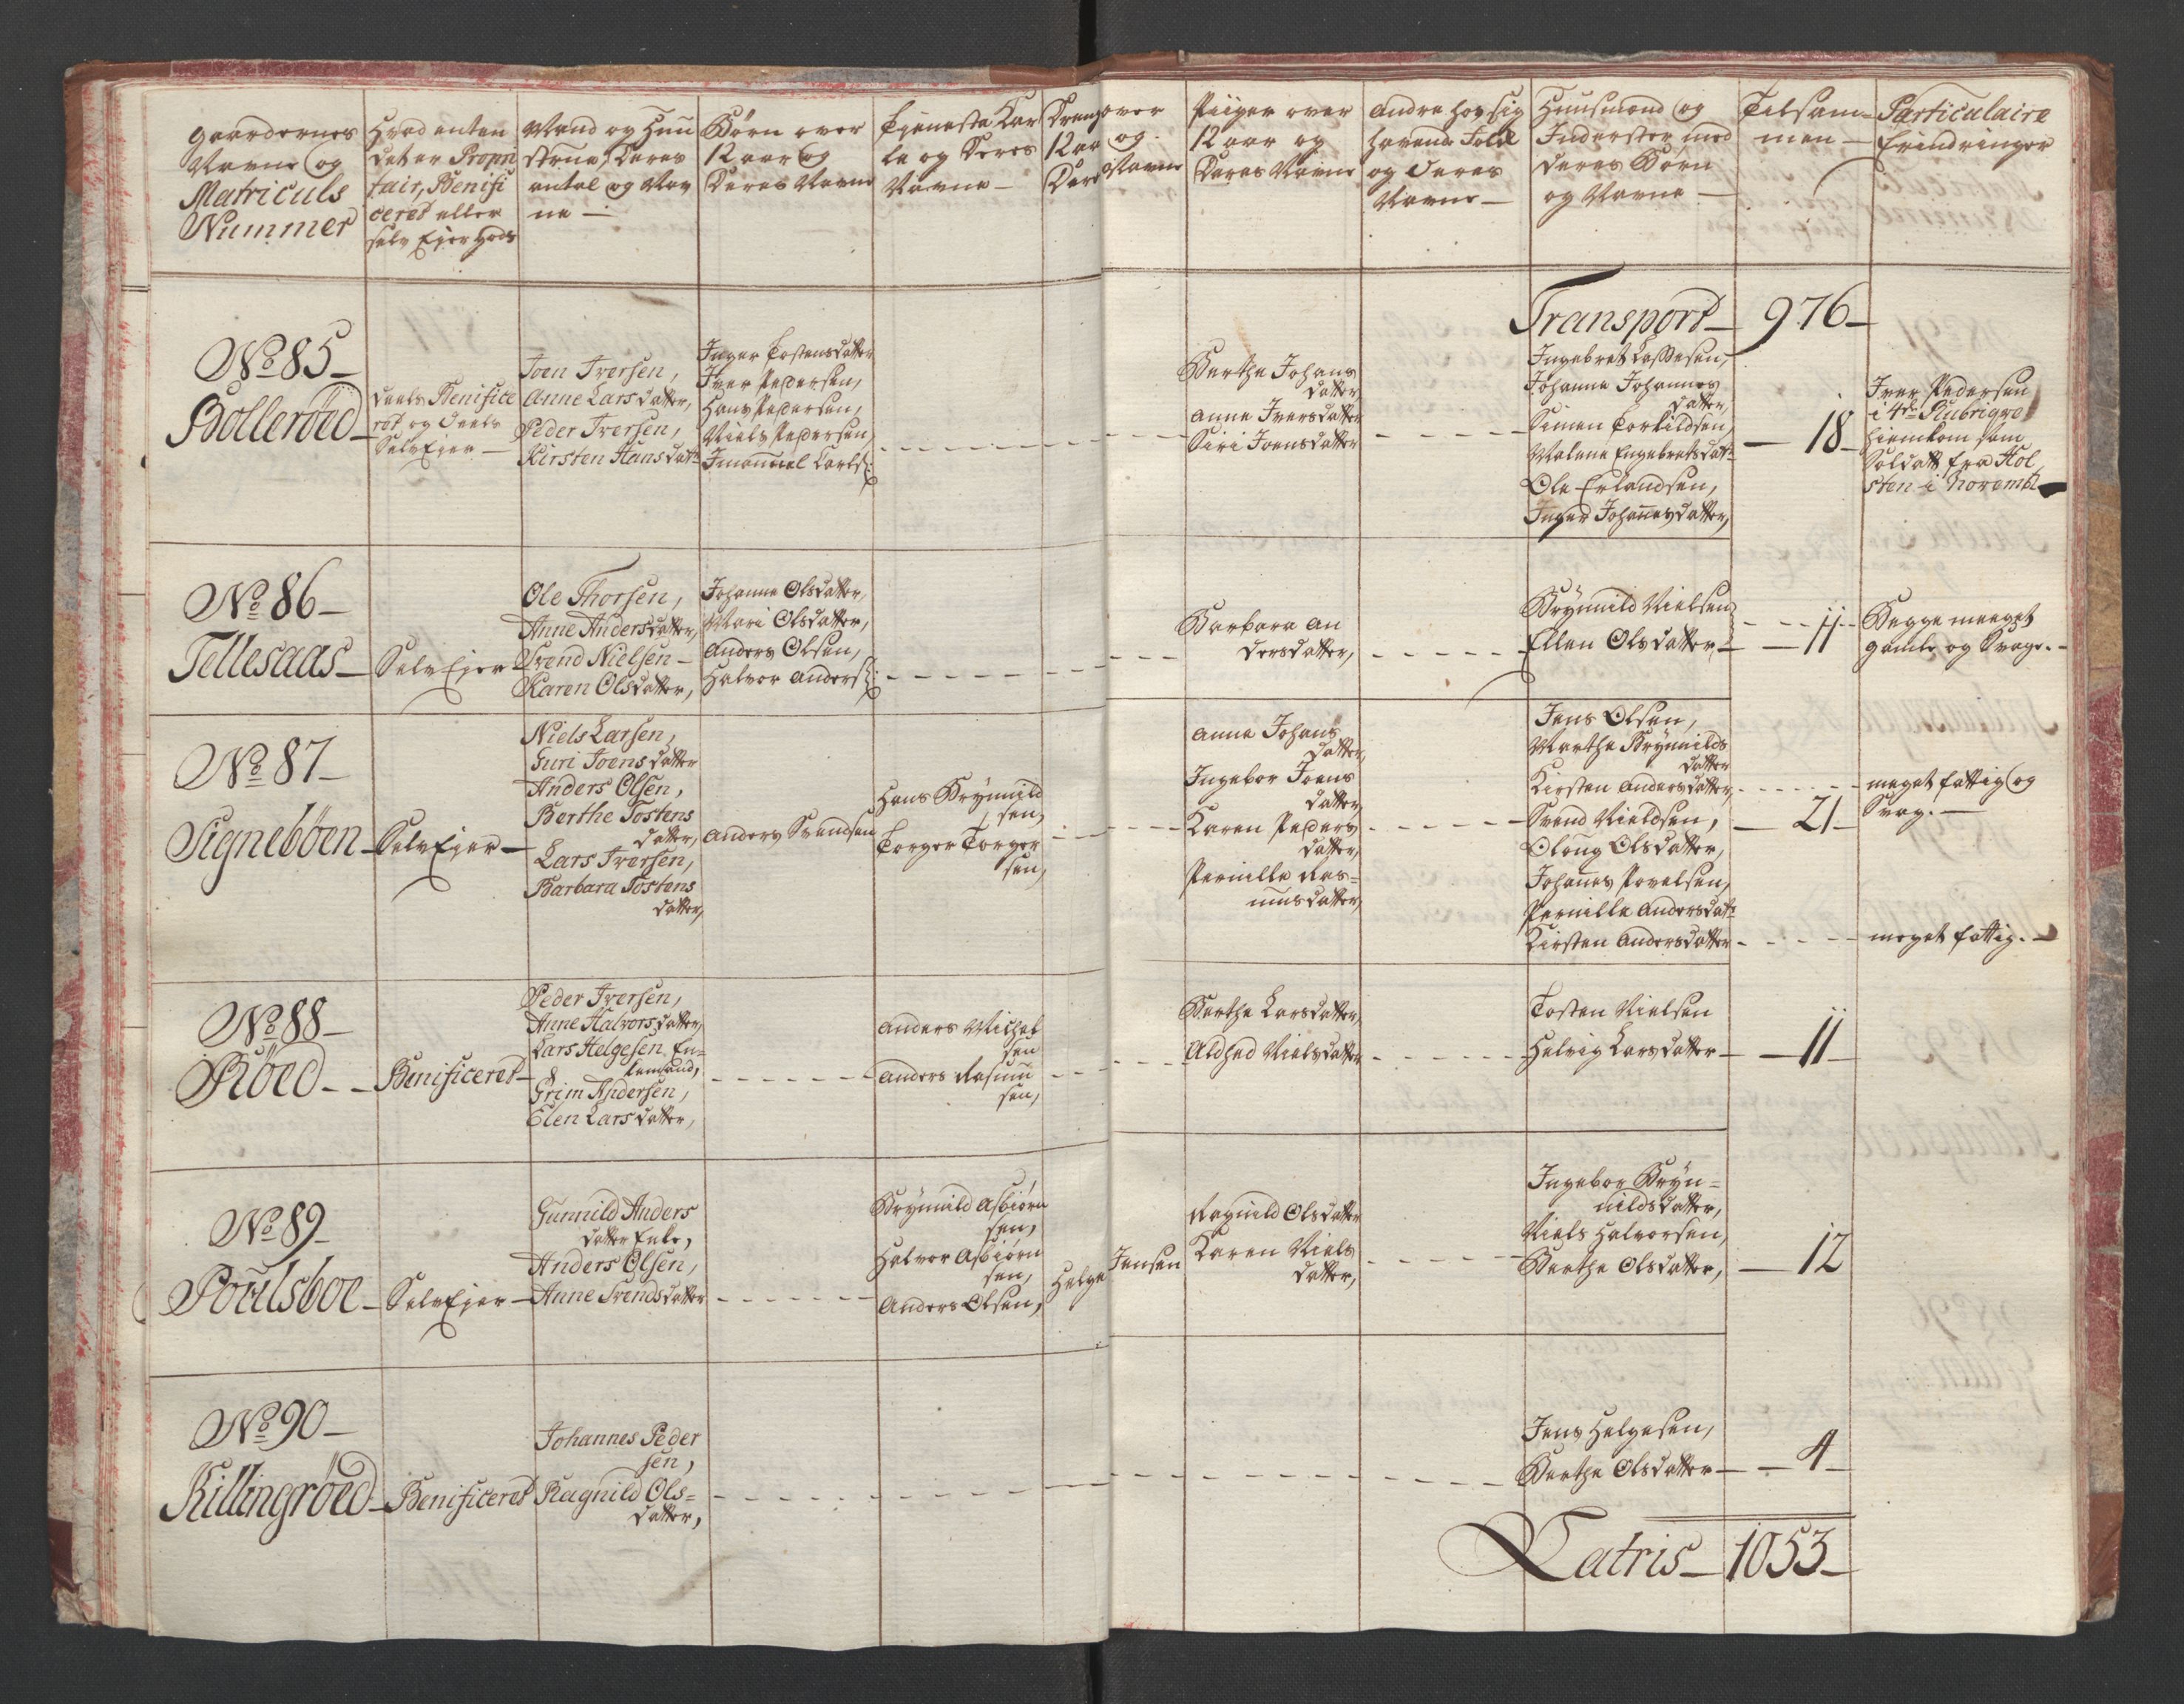 Gaardernes
Navne og
Matriculs
Nummer
Hvad enten
det er Propri
tair, Benifi
ceret eller
selv Ejer gods
Mand og Huu
strue, deres
antal og Nav
ne —
Børn over
12 aar og
Deres Navne
Tjeneste Kar
le og Deres
Navne —
Drenge over
12 aar og
Deres Navne
Piiger over
12 aar og
Deres Navne
Andre hos sig
havende Folk
og Deres
Navne —
Huusmænd og
Inderster med
deres Børn
og Navne —
Tilsam=
men —
Particulaire
Erindringer
Transport — 976 —
No 85 —
Bollerøed —
Deels Benifice
ret og Deels
SelvEjer —
Joen Iversen,
Anne Larsdatter,
Peder Iversen,
Kirsten Hansdatr
Inger Tostensdatter
Iver Pedersen,
Hans Pedersen,
Niels Pedersen,
Imanuel Carls:
Berthe Johans
datter,
Anne Iversdatter
Siri Joensdatter
Ingebret Lassesen,
Johanne Johannes
datter,
Simen Torkildsen,
Malene Engebretsdatr
Ole Erlandsen,
Inger Johannesdatter,
— 18 —
Iver Pedersen
i 4de Rubrique
hiemkom som
Soldatt fra Hol
sten i Novembr
No 86 —
Tellesaas —
SelvEjer —
Ole Thorsen,
Anne Andersdatter,
Svend Nielsen —
Karen Olsdatter,
Johanne Olsdatter,
Mari Olsdatter,
Anders Olsen,
Halvor Anders:
Barbara An
dersdatter,
Brynnild Nielsen
Ellen Olsdatter —
— 11
Begge meeget
gamle og Svage. —
No 87 —
Signebøen —
SelvEjer —
Niels Larsen,
Guri Joensdatter
Anders Olsen,
Berthe Tostens
datter,
Lars Iversen,
Barbara Tostens
datter,
Anders Svendsen
Hans Brynnild
sen,
Torger Torger
sen,
Anne Johans
datter,
Ingebor Joens
datter,
Karen Peders
datter,
Pernille Ras=
musdatter,
Jens Olsen,
Marthe Brynnilds
datter
Kirsten Andersdatter,
Svend Nieldsen,
Oloug Olsdatter,
Johannes Povelsen,
Pernille Andersdatr
Kirsten Andersdatter
— 21 —
meget fattig og
Svag. —
meget fattig. —
No 88 —
Røed —
Benificeret —
Peder Iversen,
Anne Halvorsdatter,
Lars Helgesen En=
kemand,
Grim Andersen,
Elen Larsdatter,
Anders Michel
sen
Anders Rasmu
sen,
Berthe Larsdatter,
Aldhed Nielsdatter
Tosten Nielsen
Helvig Larsdatter —
— 11 —
No 89 —
Poulsboe —
SelvEjer —
Gunnild Anders
datter Enke,
Anders Olsen,
Anne Svendsdatter
Brynnild Asbiørn
sen,
Halvor Asbiørn
sen,
Anders Olsen,
Helge Jensen
Ragnild Olsdatter
Karen Niels
datter,
Ingebor Bryn=
nildsdatter,
Niels Halvorsen,
Berthe Olsdatter,
— 12
No 90 —
Killingrøed —
Benificeret
Johannes Peder
sen,
Ragnild Ols=
datter,
Jens Helgesen,
Berthe Olsdatter —
— 4 —
Latris — 1053 —